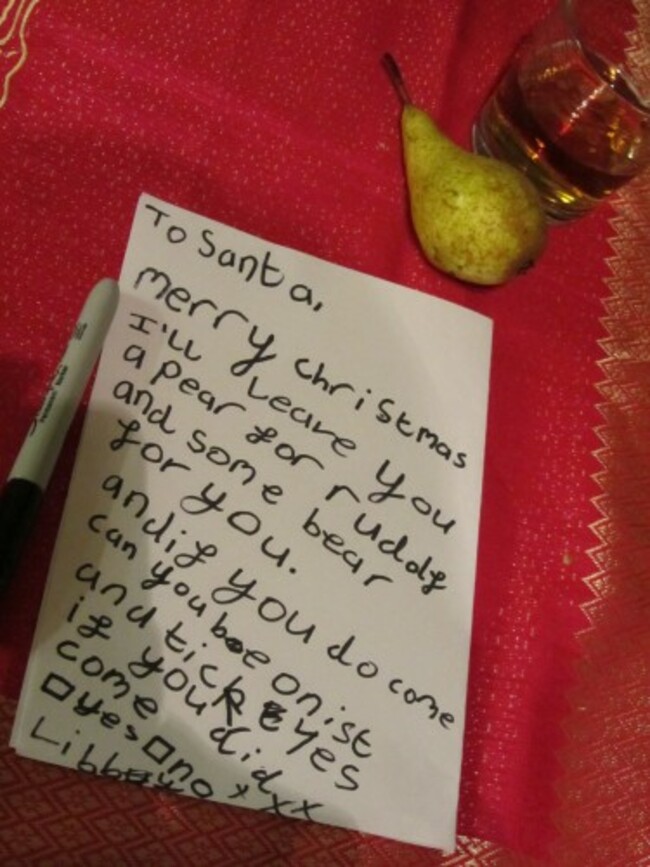 To Santa,
merry christmas
I'll leave you
a pear for ruddy
and some bear
for you.
and if you do come
can you be onist
and tick yes
if you yes
come did
yes no
Libby xxx